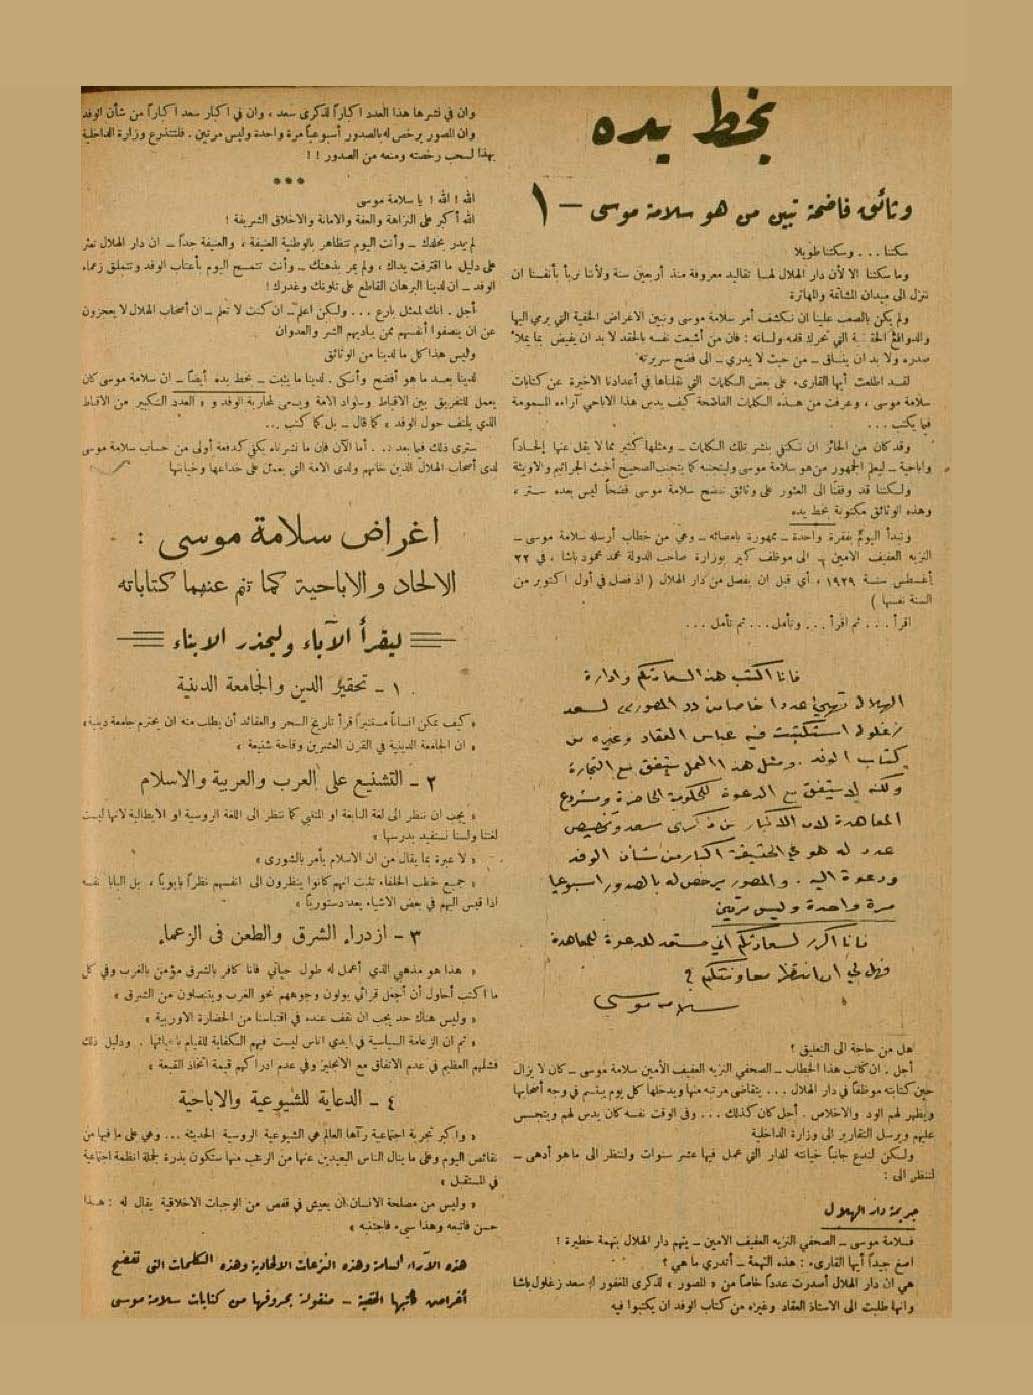 بخط يده
وثائق فاضحة تبين من هو سلامة موسى – ١
سكتنا ... وسكتنا طويلا
وما سكتنا الا لأن دار الهلال لها تقاليد معروفة منذ أربعين سنة ولأننا نربأ بأنفسنا ان
ننزل الى ميدان المشاتمة والمهاترة
ولم يكن بالصعب علينا ان نكشف أمر سلامة موسى ونبين الاغراض الخفية التي يرمي اليها
والدوافع التي تحرك قلمه ولسانه : فان من أشبعت نفسه بالحقد لا بد ان يفيض بما يملأ
صدره ولا بد ان ينساق – من حيث لا يدري – الى فضح سريرته
لقد اطلعت أيها القارىء على بعض الكلمات التي نقلناها في أعدادنا الاخيرة عن كتابات
سلامة موسى ، وعرفت من هذه الكلمات الفاضحة كيف يدس هذا الاباحي آراءه المسمومة
فيما يكتب ...
وقد كان من الجائز ان نكتفي بنشر تلك الكلمات – ومثلها كثير مما لا يقل عنها إلحاداً
واباحية – ليعلم الجمهور من هو سلامة موسى وليتجنبه كما يتجنب الصحيح أخبث الجراثيم والاوبئة
ولكننا قد وفقنا الى العثور على وثائق تفضح سلامة موسى فضحاً ليس بعده ستر ،
وهذه الوثائق مكتوبة بخط يده
ونبدأ اليوم بفقرة واحدة – ممهورة بامضائه – وهي من خطاب أرسله سلامة موسى –
النزيه العفيف الامين – الى موظف كبير بوزارة صاحب الدولة محمد محمود باشا ، في ٢٢
أغسطس سنة ١٩٢٩ ، أي قبل ان يفصل من دار الهلال ( اذ فصل في أول اكتوبر من
السنة نفسها )
اقرأ ... ثم اقرأ ... وتأمل ... ثم تأمل ...
فانا اكتب هذا لسعادتكم وادارة
الهلال تهيئ عددا خاصا من المصور لسعد
زغلول استكتبت فيه عباس العقاد وغيره من
كتاب الوفد . ومثل هذا العمل يتفق مع التجارة
ولكنه لا يتفق مع الدعوة للحكومة الحاضرة ومشروع
المعاهدة لان الاكبار من ذكرى سعد وتخصيص
عدد له هو في الحقيقة اكبار من شأن الوفد
ودعوة اليه . والمصور يرخص له بالصدور اسبوعيا
مرة واحدة وليس مرتين
فانا اكرر لسعادتكم اني مستعد للدعوة للمعاهدة
فهل لي ان انتظر معاونتكم ؟
سلامه موسى
هل من حاجة الى التعليق ؟
أجل . ان كاتب هذا الخطاب – الصحفي النزيه العفيف الأمين سلامة موسى – كان لا يزال
حين كتابته موظفاً في دار الهلال ... يتقاضى مرتبه منها ويدخلها كل يوم يبتسم في وجه أصحابها
ويظهر لهم الود والاخلاص . أجل كان كذلك ... وفى الوقت نفسه كان يدس لهم ويتجسس
عليهم ويرسل التقارير الى وزارة الداخلية
ولكن لندع جانباً خيانته للدار التي عمل فيها عشر سنوات ولننظر الى ما هو أدهى –
لننظر الى :
جريمة دار الهلال
فسلامة موسى – الصحفي النزيه العفيف الامين – يتهم دار الهلال بتهمة خطيرة !
اصغ جيداً أيها القارىء : هذه التهمة – أتدري ما هي ؟
هي ان دار الهلال أصدرت عدداً خاصاً من « المصور » لذكرى المغفور له سعد زغلول باشا
وانها طلبت الى الاستاذ العقاد وغيره من كتاب الوفد ان يكتبوا فيه
وان في نشرها هذا العدد اكباراً لذكرى سعد ، وان في اكبار سعد اكباراً من شأن الوفد
وان المصور يرخص له بالصدور أسبوعياً مرة واحدة وليس مرتين . فلتتذرع وزارة الداخلية
بهذا لسحب رخصته ومنعه من الصدور ! !
***
الله ! الله ! يا سلامة موسى
الله أكبر على النزاهة والعفة والامانة والاخلاق الشريفة !
لم يدر بخلدك – وأنت اليوم تتظاهر بالوطنية العنيفة ، والعنيفة جداً – ان دار الهلال تعثر
على دليل ما اقترفت يداك ، ولم يمر بذهنك – وأنت تتمسح اليوم بأعتاب الوفد وتتملق زعماء
الوفد – ان لدينا البرهان القاطع على تلونك وغدرك !
أجل . انك لممثل بارع ... ولكن اعلم – ان كنت لا تعلم – ان أصحاب الهلال لا يعجزون
عن ان ينصفوا أنفسهم ممن يباديهم الشر والعدوان
وليس هذا كل ما لدينا من الوثائق
لدينا بعد ما هو أفضح وأنكى . لدينا ما يثبت – بخط يده أيضاً – ان سلامة موسى كان
يعمل للتفريق بين الاقباط وسواد الامة ويسعى لمحاربة الوفد و « العدد الكبير من الاقباط
الذي يلتف حول الوفد » كما قال – بل كما كتب ...
سترى ذلك فيما بعد ... أما الآن فان ما نشرناه يكفي كدفعة أولى من حساب سلامة موسى
لدى أصحاب الهلال الذين خانهم ولدى الامة التي يعمل على خداعها وخيانتها
اغراض سلامة موسى :
الالحاد والاباحية كما تنم عنهما كتاباته
ليقرأ الآباء وليحذر الابناء
١ – تحقير الدين والجامعة الدينية
« كيف يمكن انساناً مستنيراً قرأ تاريخ السحر والعقائد أن يطلب منه ان يحترم جامعة دينية »
« ان الجامعة الدينية في القرن العشرين وقاحة شنيعة »
٢ – التشنيع على العرب والعربية والاسلام
« يجب ان ننظر الى لغة النابغة او المتنبي كما ننظر الى اللغة الروسية او الايطالية لانها ليست
لغتنا ولسنا نستفيد بدرسها »
« لا عبرة بما يقال من ان الاسلام يأمر بالشورى »
« جميع خطب الخلفاء تثبت انهم كانوا ينظرون الى انفسهم نظراً بابوياً ، بل البابا نفسه
اذا قيس اليهم في بعض الاشياء يعد دستورياً »
٣ – ازدراء الشرق والطعن فى الزعماء
« هذا هو مذهبي الذي أعمل له طول حياتي فانا كافر بالشرق مؤمن بالغرب وفي كل
ما اكتب أحاول أن أجعل قرائي يولون وجوههم نحو الغرب ويتنصلون من الشرق »
« وليس هناك حد يجب ان نقف عنده في اقتباسنا من الحضارة الاوربية »
« ثم ان الزعامة السياسية في ايدي اناس ليست فيهم الكفاية للقيام باعبائها . ودليل ذلك
فشلهم العظيم في عدم الاتفاق مع الانجليز وفي عدم ادراكهم قيمة اتخاذ القبعة »
٤ – الدعاية للشيوعية والاباحية
« واكبر تجربة اجتماعية رآها العالم هي الشيوعية الروسية الحديثة ... وهي على ما فيها من
نقائص اليوم وعلى ما ينال الناس البعيدين عنها من الرعب منها ستكون بذرة لجملة انظمة اجتماعية
في المستقبل »
« وليس من مصلحة الانسان ان يعيش في قفص من الواجبات الاخلاقية يقال له : هذا
حسن فاتبعه وهذا سيء فاجتنبه »
هذه الآراء السامة وهذه النزعات الالحادية وهذه الكلمات التى تفضح
أغراض كاتبها الخفية – منقولة بحروفها من كتابات سلامة موسى